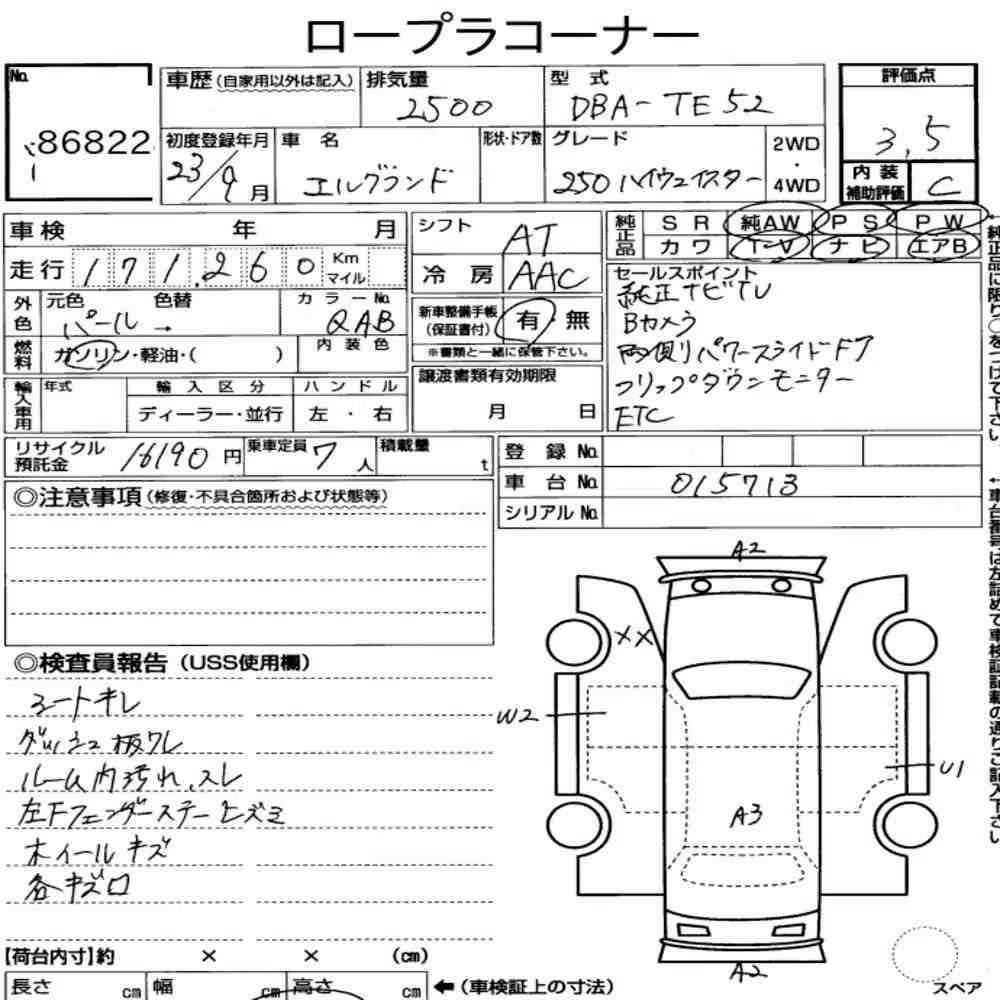 ロープラコーナー
No.
86822
車歴(自家用以外は記入)
排気量
2500
型式
DBA-TE52
評価点
3.5
初度登録年月
23/9月
車名
エルグランド
形状・ドア数
グレード
250ハイウェイスター
2WD
・
4WD
内装
補助評価
C
車検 年 月
シフト
AT
純正品
SR 純AW PS PW
カワ T-V ナビ エアB
走行 171,260 Km マイル
冷房 AAC
セールスポイント
純正ナビTV
Bカメラ
両側パワースライドドア
フリップダウンモニター
ETC
外色
元色 色替
パール→
カラーNo.
QAB
新車整備手帳
(保証書付)
有・無
※書類と一緒に保管下さい。
燃料
ガソリン・軽油・( )
内装色
輸入車用
年式
輸入区分
ディーラー・並行
ハンドル
左・右
譲渡書類有効期限
月 日
リサイクル
預託金
16190円
乗車定員
7人
積載量
t
登録No.
車台No. 015713
シリアルNo.
◎注意事項(修復・不具合箇所および状態等)
◎検査員報告(USS使用欄)
シートキレ
ダッシュ板ワレ
ルーム内汚れ、スレ
左Fフェンダーステーヒズミ
ホイールキズ
各キズ凹
A2
XX
W2
U1
A3
A2
【荷台内寸】約 × × (cm)
長さ cm 幅 cm 高さ cm
←(車検証上の寸法)
スペア
←純正品に限り○をつけて下さい。
←車台番号は左詰めで車検証記載の通りご記入下さい